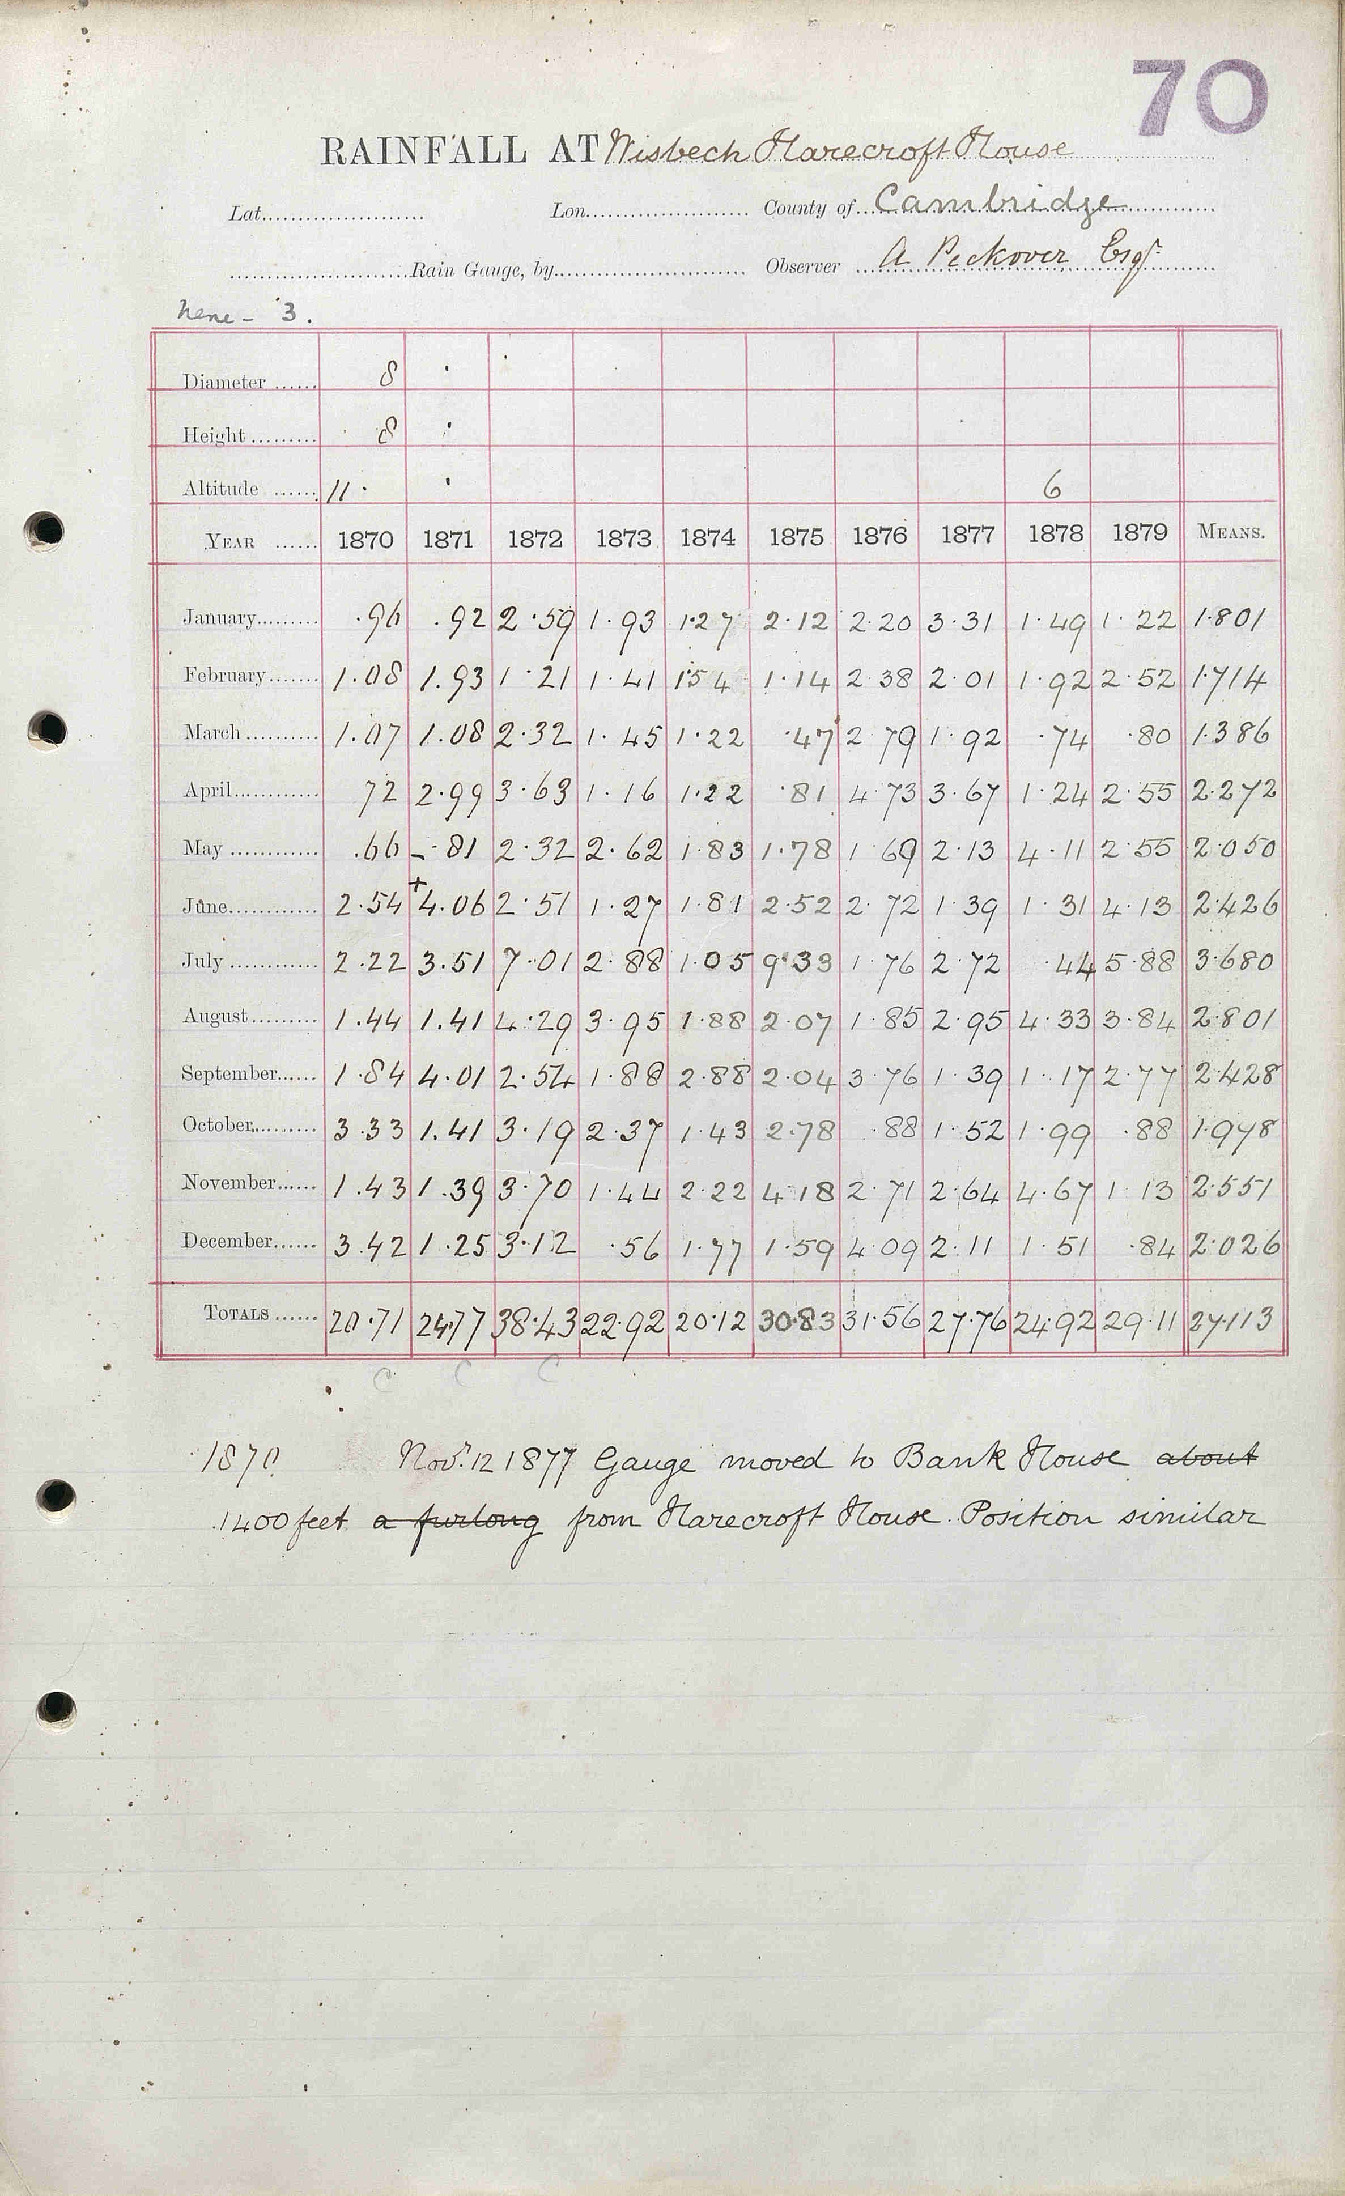 70
RAINFALL AT Wisbech Harecroft House
Lat........................ Lon........................ County of Cambridge
........................Rain Gauge, by........................ Observer A Peckover Esqr.
Nene - 3.
Diameter ...... 8
Height ......... 8
Altitude ...... 11 · 6
YEAR ...... 1870 1871 1872 1873 1874 1875 1876 1877 1878 1879 MEANS.
January......... .96 .92 2.59 1.93 1.27 2.12 2.20 3.31 1.49 1.22 1.801
February....... 1.08 1.93 1.21 1.41 1.54 1.14 2.38 2.01 1.92 2.52 1.714
March .......... 1.07 1.08 2.32 1.45 1.22 .47 2.79 1.92 .74 .80 1.386
April............ 72 2.99 3.63 1.16 1.22 .81 4.73 3.67 1.24 2.55 2.272
May ............ .66 - .81 2.32 2.62 1.83 1.78 1.69 2.13 4.11 2.55 2.050
June............ 2.54 +4.06 2.51 1.27 1.81 2.52 2.72 1.39 1.31 4.13 2.426
July ............ 2.22 3.51 7.01 2.88 1.05 9.33 1.76 2.72 .44 5.88 3.680
August......... 1.44 1.41 4.29 3.95 1.88 2.07 1.85 2.95 4.33 3.84 2.801
September...... 1.84 4.01 2.54 1.88 2.88 2.04 3.76 1.39 1.17 2.77 2.428
October......... 3.33 1.41 3.19 2.37 1.43 2.78 .88 1.52 1.99 .88 1.978
November...... 1.43 1.39 3.70 1.44 2.22 4.18 2.71 2.64 4.67 1.13 2.551
December...... 3.42 1.25 3.12 .56 1.77 1.59 4.09 2.11 1.51 .84 2.026
TOTALS ...... 20.71 24.77 38.43 22.92 20.12 30.83 31.56 27.76 24.92 29.11 27.113
c c c
1870. Novr. 12 1877 Gauge moved to Bank House about
1400 feet a furlong from Harecroft House. Position similar